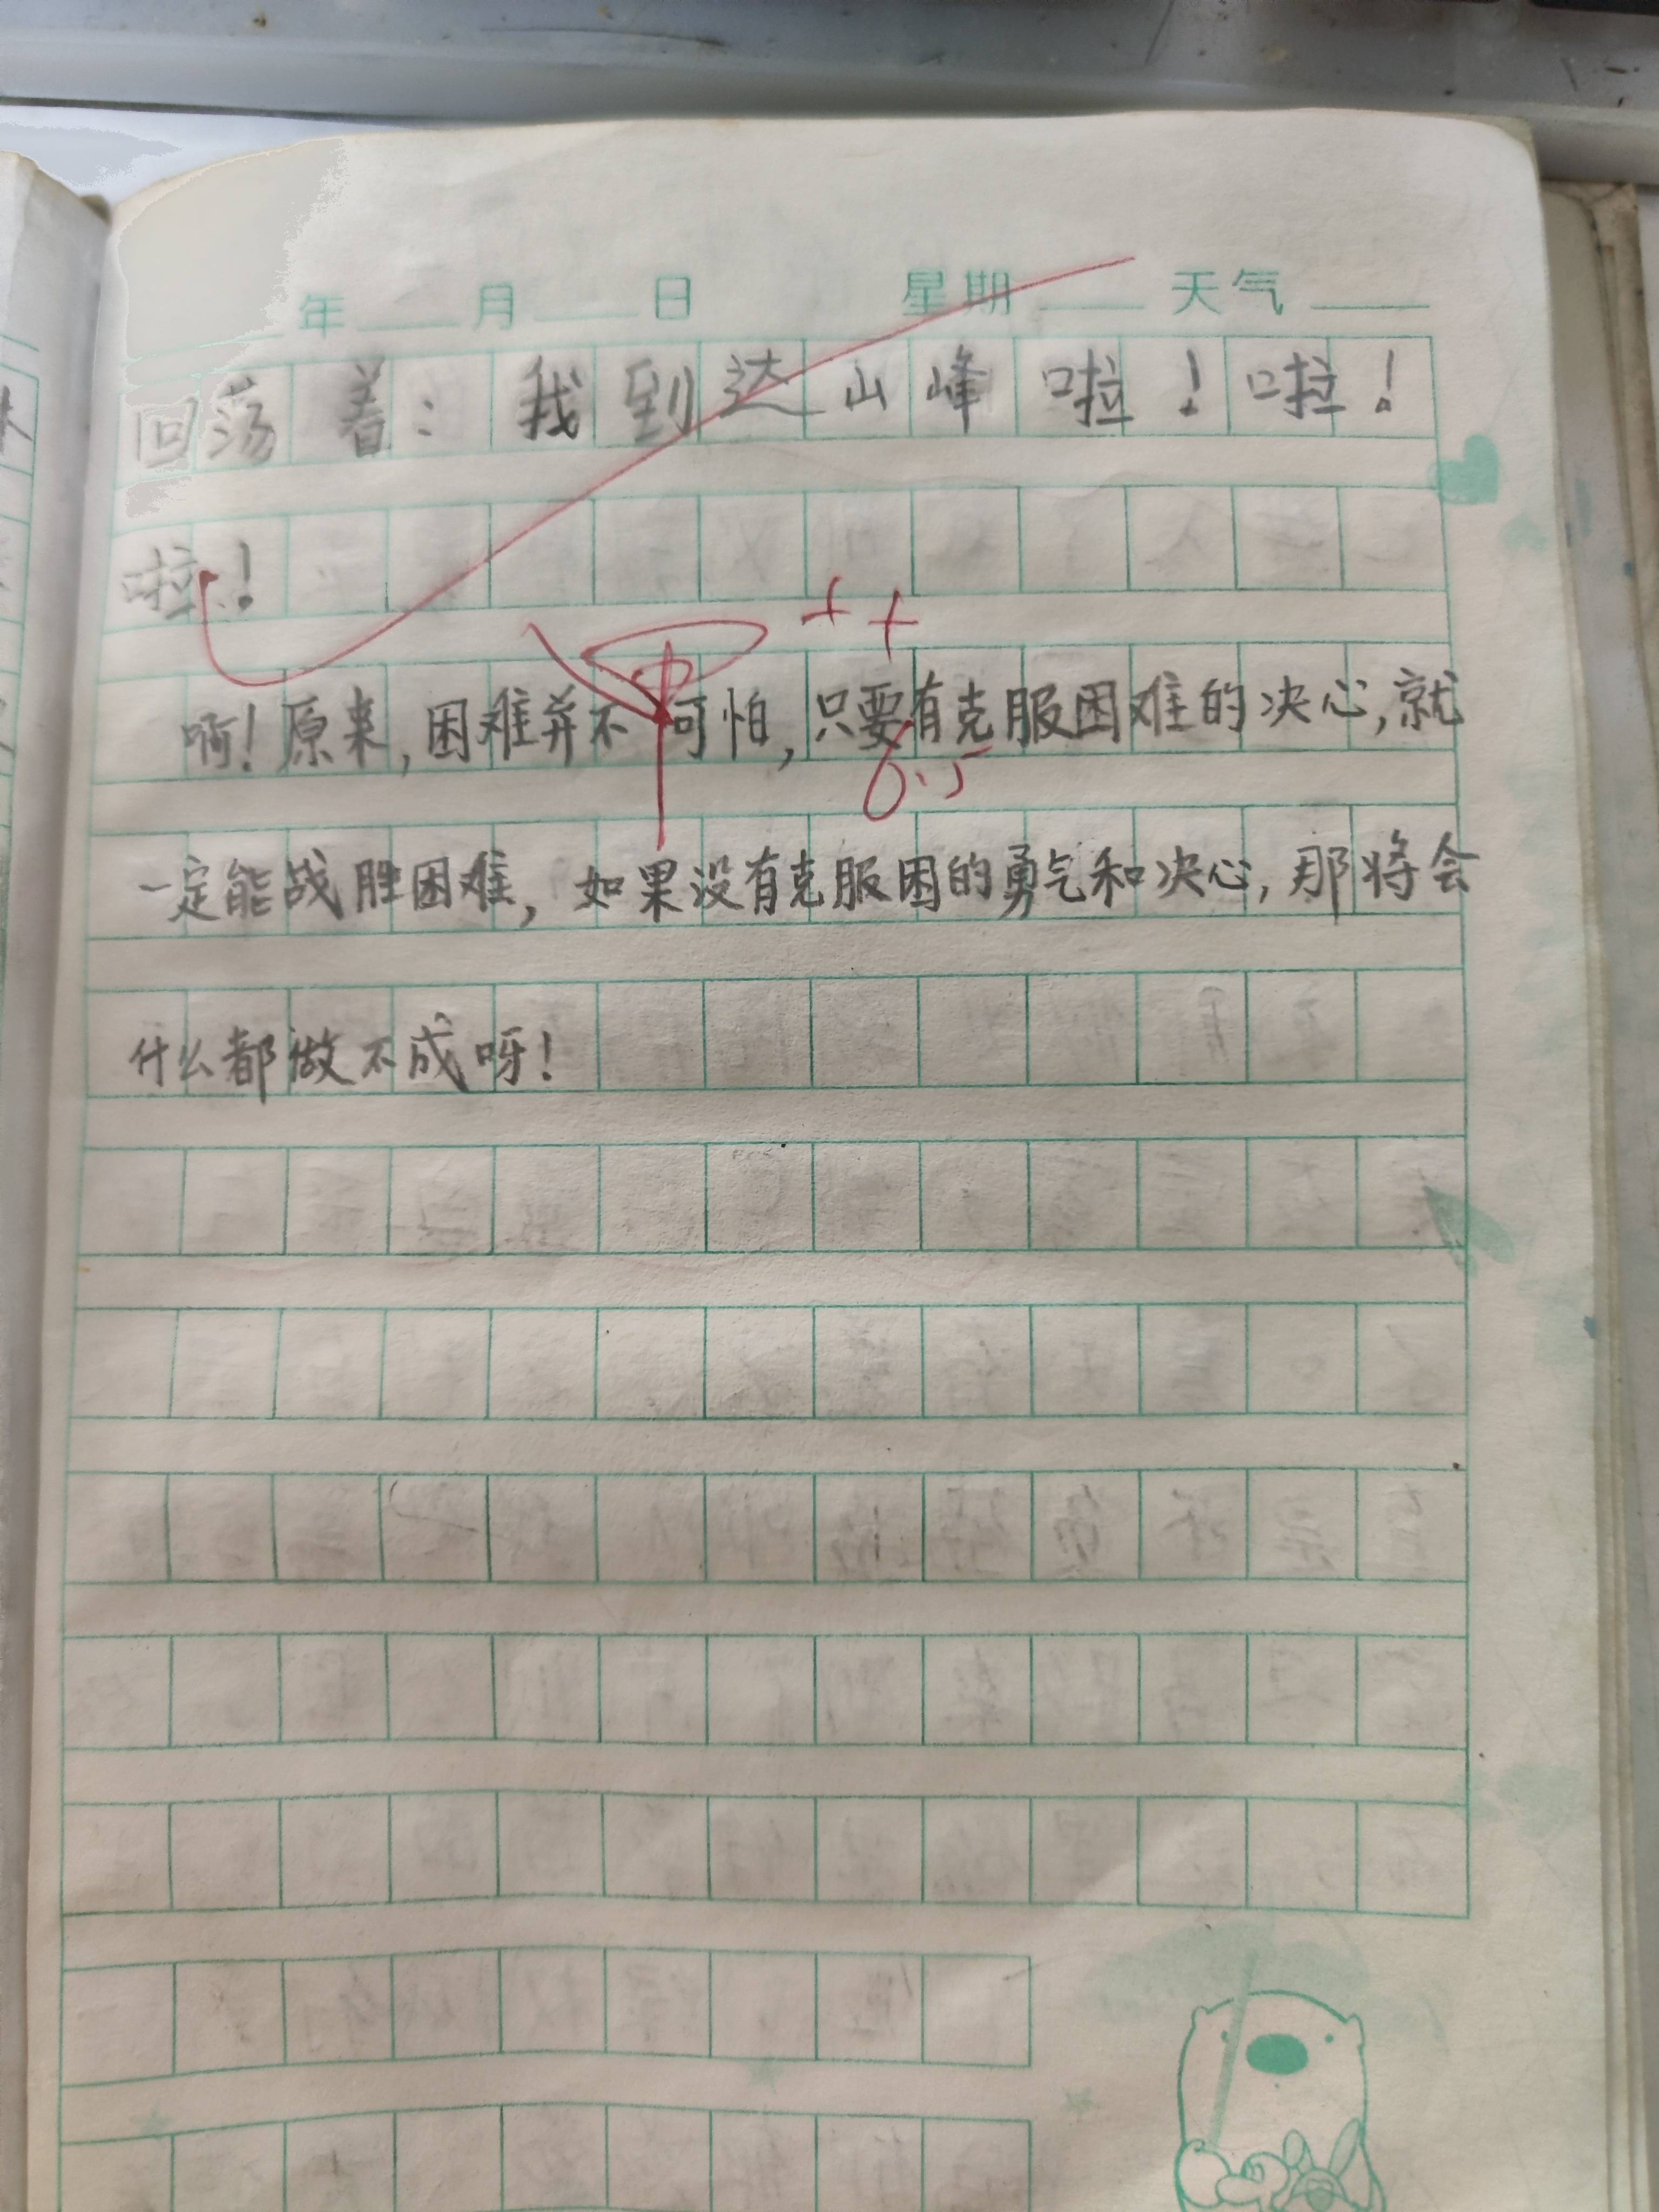 年 月 日 星期 天气
回荡着：我到达山峰啦！啦！
啦！
++
啊！原来，困难并不可怕，只要有克服困难的决心，就
6.5
一定能战胜困难，如果没有克服困的勇气和决心，那将会
什么都做不成呀！